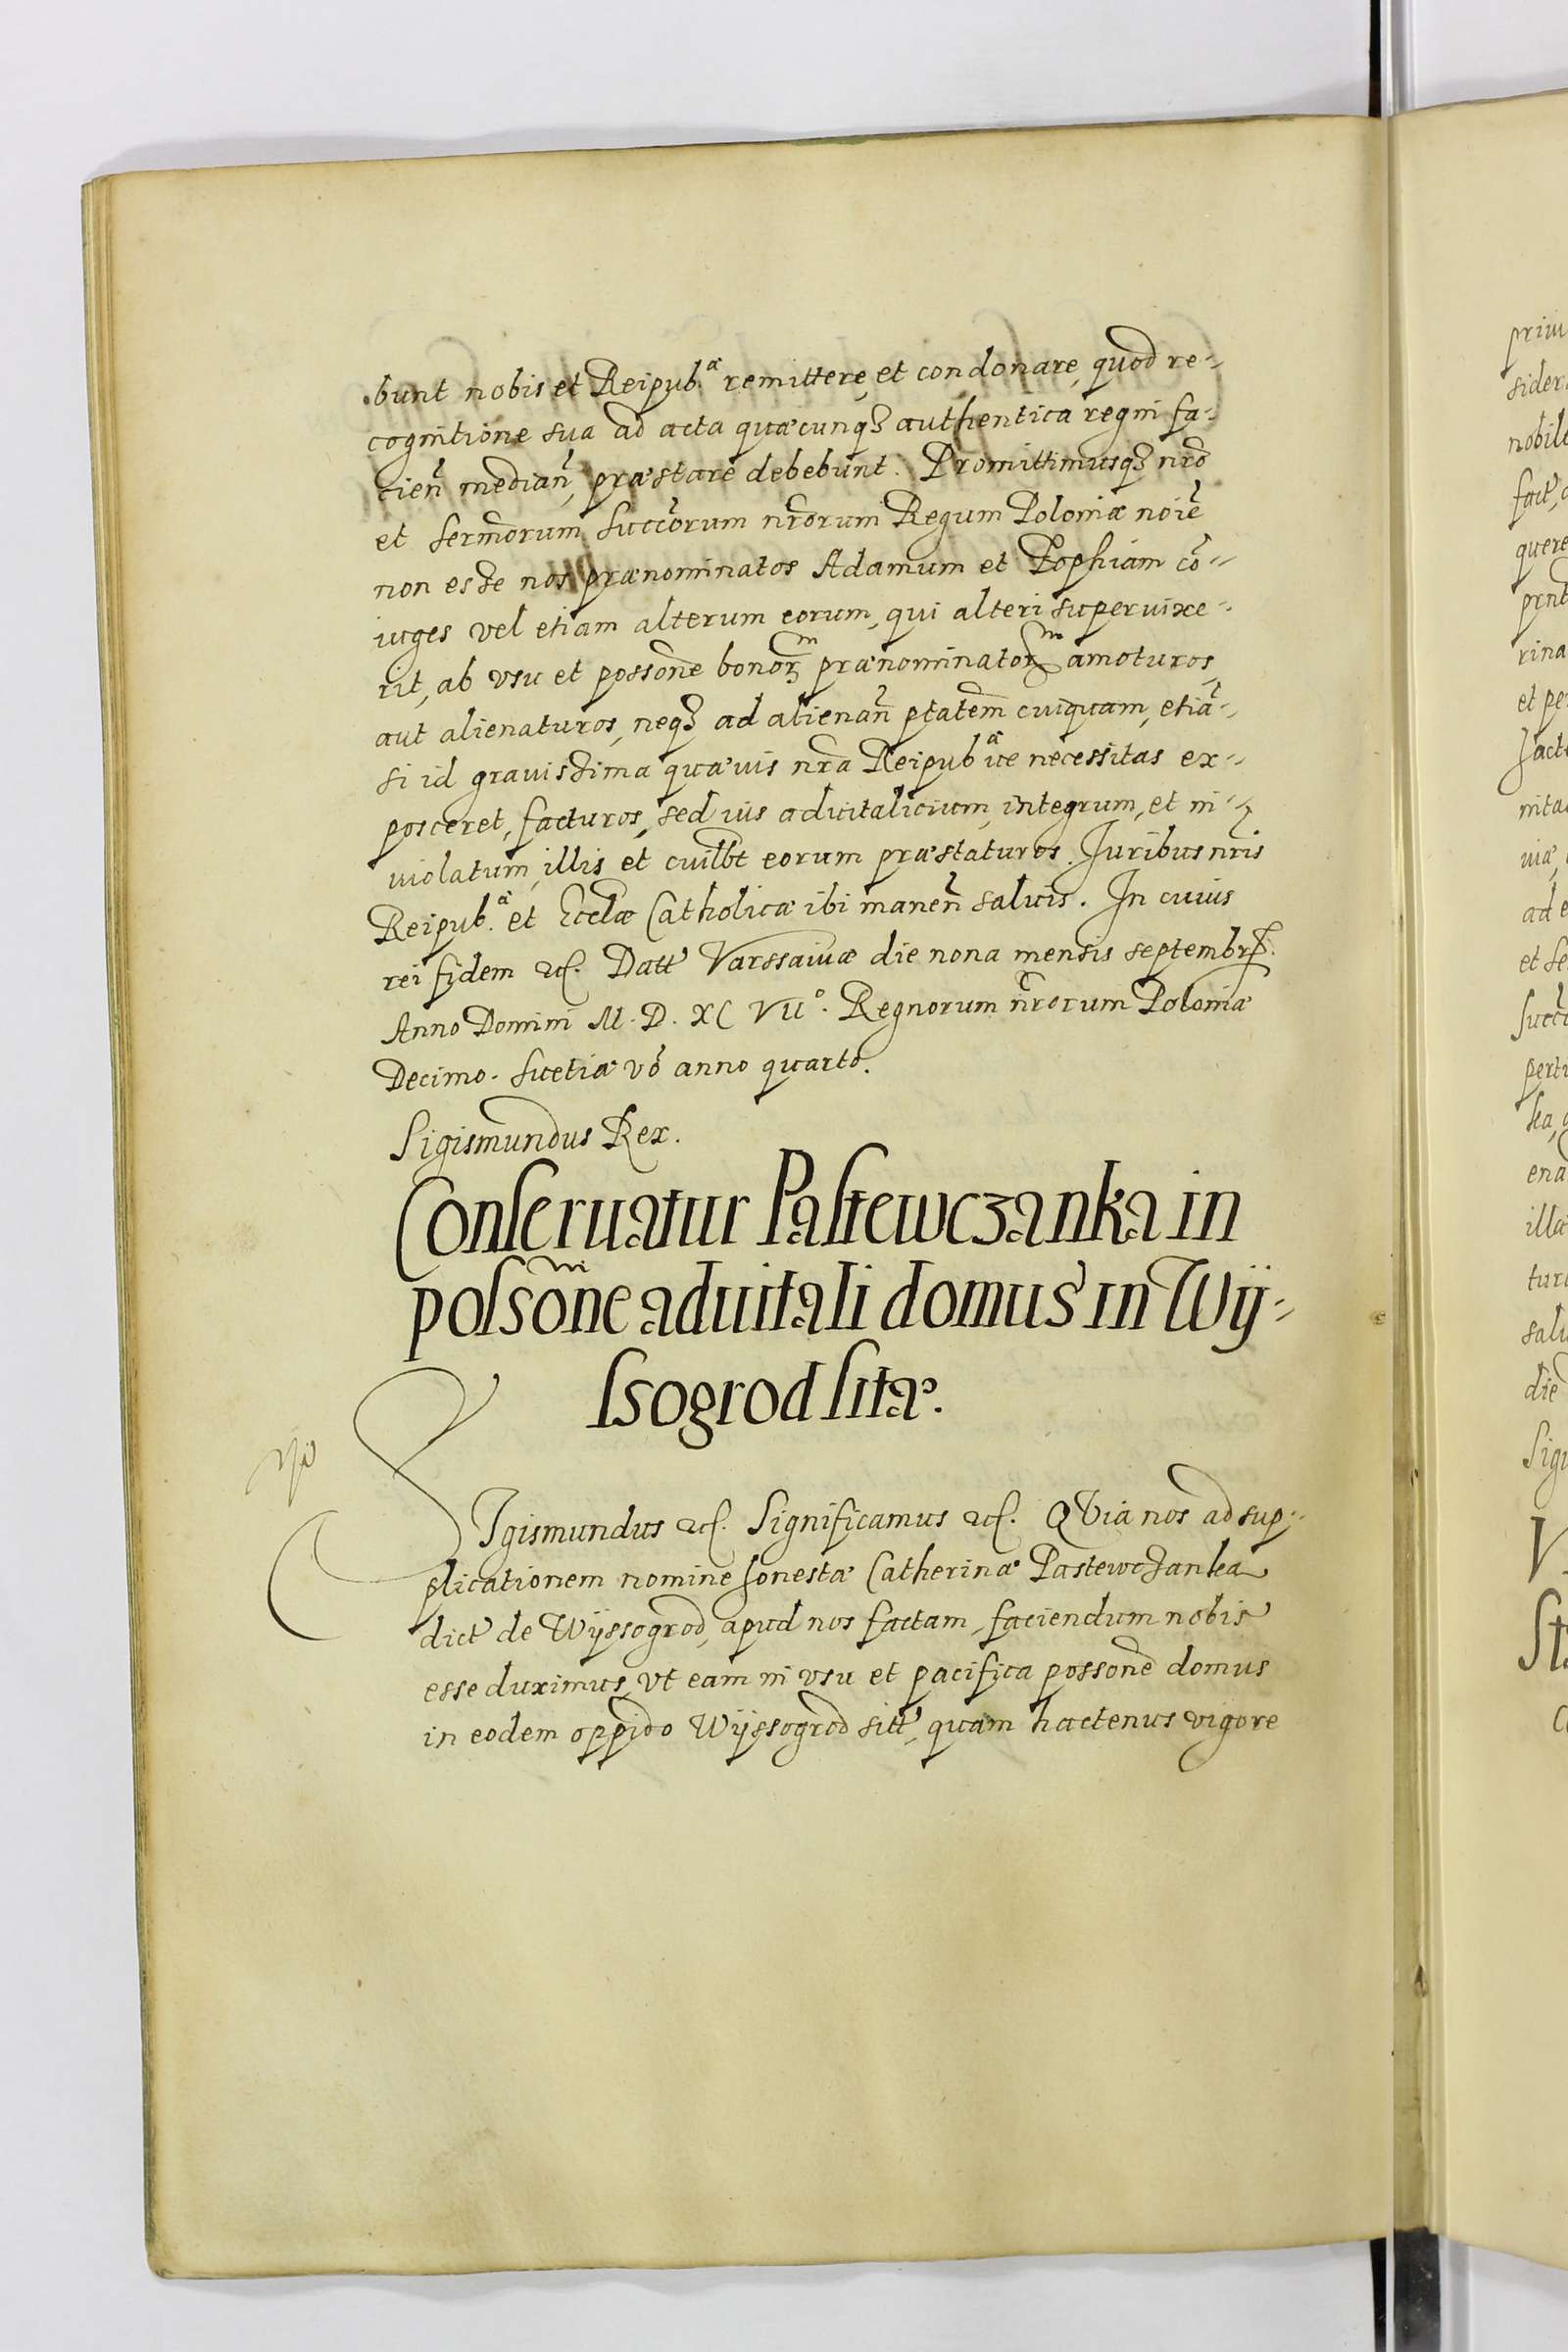 bunt nobis et Reipub.ᵃ remittere, et condonare, quod re-
cognitione sua ad acta quæcunqȝ authentica regni fa-
cien̄ median̄, præstare debebunt. Promittimusqȝ nr̄o
et Serm̄orum Succ̄orum nr̄orum Regum Poloniæ noīe
non esse nos prænominatos Adamum et Zophiam cō-
iuges vel etiam alterum eorum, qui alteri superuixe-
rit, ab vsu et posson̄e bonorᵐ prænominatorᵐ amoturos,
aut alienaturos, neqȝ ad alienan̄ ptātem cuiquam, etiā-
si id gravissima quævis nr̄a Reipubᵃ ve necessitas ex-
posceret, facturos, sed ius aduitalicium, integrum, et in-
uiolatum, illis et cuilb̄t eorum præstaturos. Juribus nr̄is
Reipub.ᵃ et Eccl̄æ Catholicæ ibi manen̄ saluis. In cuius
rei fidem ꝛc. Datt Varssaiuæ die nona mensis septembr̄.
Anno Domini M. D. XC VII°. Regnorum nr̄orum Poloniæ
Decimo. Suetiæ vō anno quarto.
Sigismundus Rex.
Conseruatur Pastewczanka in
possōne aduitali domus in Wÿ-
ssogrod sitæ.
SIgismundus ꝛc. Significamus ꝛc. QVia nos ad sup-
plicationem nomine honestæ Catherinæ Pastewczanka
dict de Wÿssogrod, apud nos factam, faciendum nobis
esse duximus, vt eam in vsu et pacifica posson̄e domus
in eodem oppido Wÿssogrod sitt, quam hactenus vigore